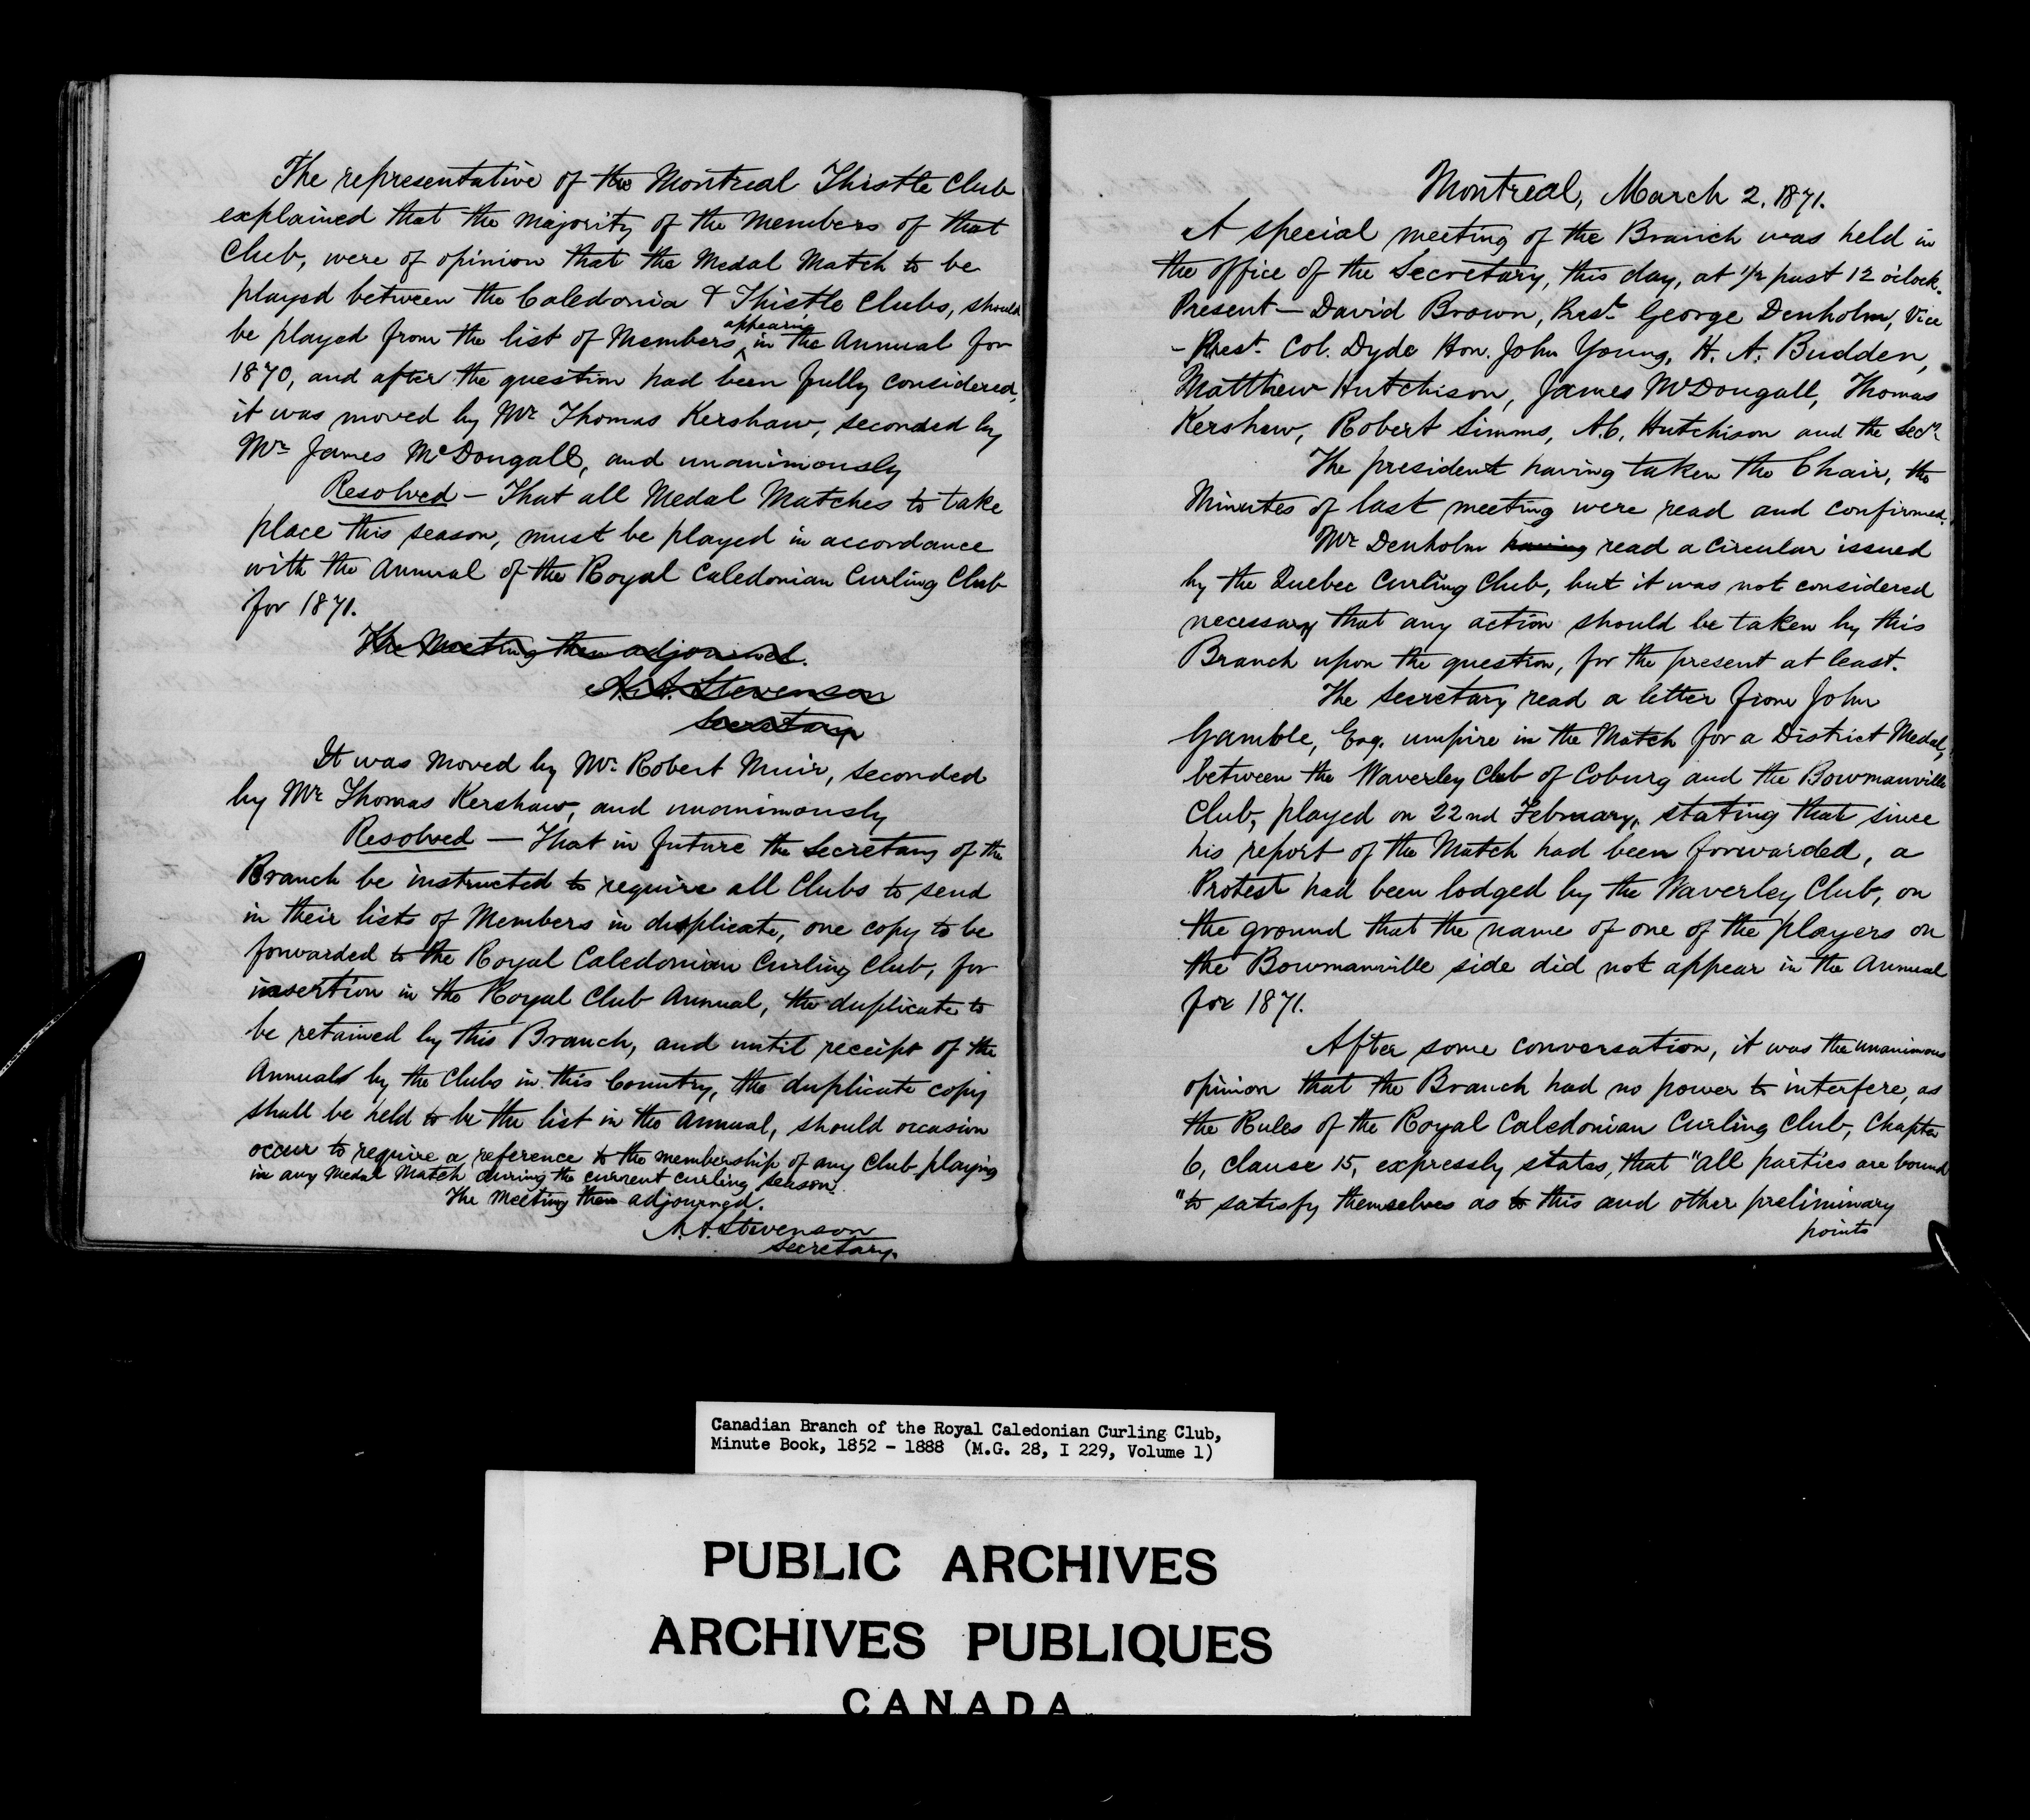 The representative of the Montreal Thistle Club
explained that the majority of the Members of that
Club, were of opinion that the Medal Match to be
played between the Caledonia & Thistle Clubs, should
be played from the list of Members appearing in the Annual for
1870, and after the question had been fully considered,
it was moved by Mr Thomas Kershaw, seconded by
Mr James McDougall, and unanimously
Resolved - That all Medal Matches to take
place this season, must be played in accordance
with the Annual of the Royal Caledonian Curling Club
for 1871.
The Meeting then adjourned.
A.A. Stevenson
Secretary
It was moved by Mr. Robert Muir, seconded
by Mr Thomas Kershaw, and unanimously
Resolved - That in future the Secretary of the
Branch be instructed to require all Clubs to send
in their lists of Members in duplicate, one copy to be
forwarded to the Royal Caledonian Curling Club, for
insertion in the Royal Club Annual, the duplicate to
be retained by this Branch, and until receipt of the
Annuals by the Clubs in this Country, the duplicate copy
shall be held to be the list in the Annual, should occasion
occur to require a reference to the membership of any Club playing
in any Medal Match during the current curling season.
The Meeting then adjourned.
A.A. Stevenson
Secretary.
Montreal, March 2. 1871.
A special meeting of the Branch was held in
the office of the Secretary, this day, at 1/2 past 12 o'clock.
Present - David Brown, Prest. George Denholm, Vice
-Prest. Col. Dyde Hon. John Young, H. A. Budden,
Matthew Hutchison, James McDougall, Thomas
Kershaw, Robert Simms, A.C. Hutchison and the Secy.
The president having taken the Chair, the
Minutes of last meeting were read and confirmed.
Mr Denholm having read a circular issued
by the Quebec Curling Club, but it was not considered
necessary that any action should be taken by this
Branch upon the question, for the present at least.
The Secretary read a letter from John
Gamble, Esq. umpire in the Match for a District Medal,
between the Waverley Club of Coburg and the Bowmanville
Club, played on 22nd February, stating that since
his report of the Match had been forwarded, a
Protest had been lodged by the Waverley Club, on
the ground that the name of one of the players on
the Bowmanville side did not appear in the Annual
for 1871.
After some conversation, it was the unanimous
opinion that the Branch had no power to interfere, as
the Rules of the Royal Caledonian Curling Club, Chapter
6, clause 15, expressly states, that "all parties are bound
"to satisfy themselves as to this and other preliminary
points
Canadian Branch of the Royal Caledonian Curling Club,
Minute Book, 1852 - 1888 (M.G. 28, I 229, Volume 1)
PUBLIC ARCHIVES
ARCHIVES PUBLIQUES
CANADA